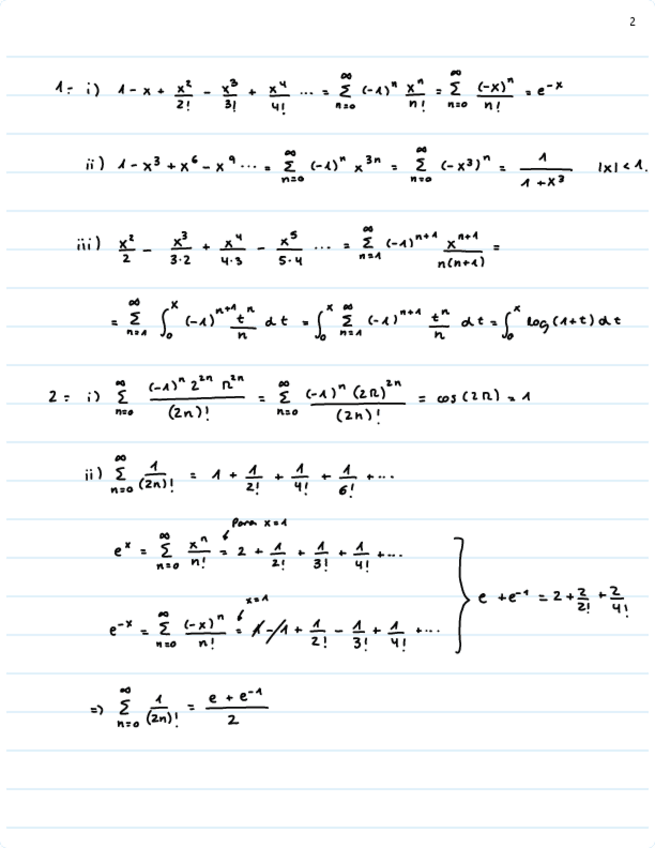 2
1- i) 1 - x + x²/2! - x³/3! + x⁴/4! ... = ∑_{n=0}^{∞} (-1)ⁿ xⁿ/n! = ∑_{n=0}^{∞} (-x)ⁿ/n! = e^{-x}
ii) 1 - x³ + x⁶ - x⁹ ... = ∑_{n=0}^{∞} (-1)ⁿ x^{3n} = ∑_{n=0}^{∞} (-x³)ⁿ = 1/(1+x³) |x| < 1.
iii) x²/2 - x³/(3·2) + x⁴/(4·3) - x⁵/(5·4) ... = ∑_{n=1}^{∞} (-1)^{n+1} x^{n+1}/(n(n+1)) =
= ∑_{n=1}^{∞} ∫_0^x (-1)^{n+1} tⁿ/n dt = ∫_0^x ∑_{n=1}^{∞} (-1)^{n+1} tⁿ/n dt = ∫_0^x log(1+t) dt
2= i) ∑_{n=0}^{∞} (-1)ⁿ 2^{2n} π^{2n}/(2n)! = ∑_{n=0}^{∞} (-1)ⁿ (2π)^{2n}/(2n)! = cos(2π) = 1
ii) ∑_{n=0}^{∞} 1/(2n)! = 1 + 1/2! + 1/4! + 1/6! + ...
Para x=1
e^x = ∑_{n=0}^{∞} xⁿ/n! = 2 + 1/2! + 1/3! + 1/4! + ...
e + e^{-1} = 2 + 2/2! + 2/4!
x=1
e^{-x} = ∑_{n=0}^{∞} (-x)ⁿ/n! = 1 - 1 + 1/2! - 1/3! + 1/4! + ...
=> ∑_{n=0}^{∞} 1/(2n)! = (e + e^{-1})/2